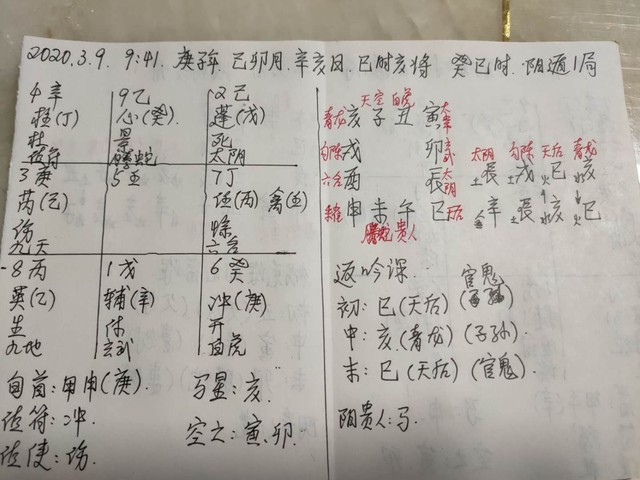 2020.3.9. 9:41. 庚子年. 己卯月. 辛亥日. 巳时亥将 癸巳时. 阴遁1局
4辛
柱(丁)
杜
9乙
心(癸).
景
螣蛇
2己
蓬(戊)
死
太阴
3庚
芮(乙)
伤
九天
5壬
7丁
任(丙) 禽(壬)
惊
六合
8丙
英(己)
生
九地
1戊
辅(辛)
休
玄武
6癸
冲(庚)
开
白虎
旬首:甲申(庚).
值符:冲.
值使:伤.
马星:亥.
空亡:寅、卯.
天空 白虎
青龙 亥 子 丑 寅 太常
勾陈 戌 卯 玄武
六合 酉 辰 太阴
朱雀 申 未 午 巳 天后
螣蛇 贵人
太阴 勾陈 天后 青龙
土辰 土戌 火巳 水亥
金辛 土辰 水亥 火巳
返吟课.
初:巳(天后) (官鬼)
中:亥(青龙) (子孙)
末:巳(天后) (官鬼).
阴贵人:马.